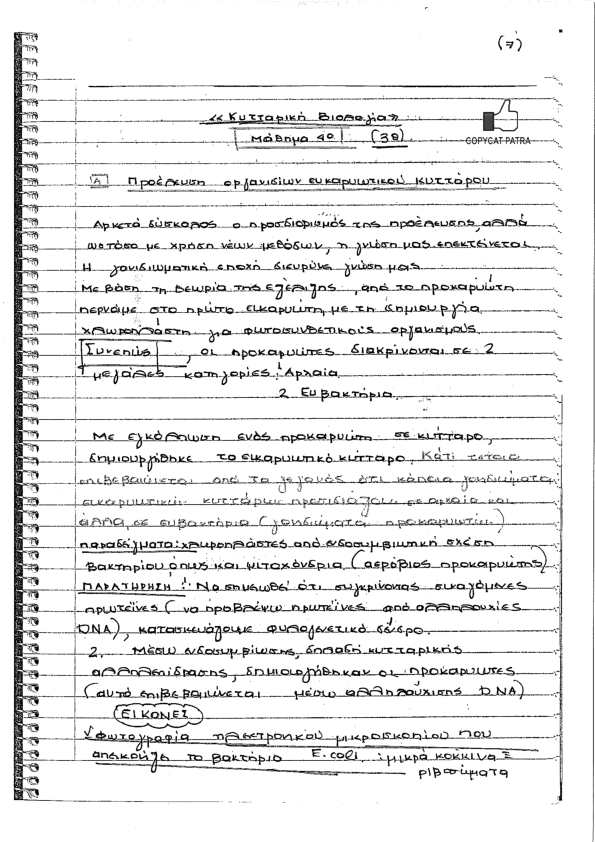 (7)
«Κυτταρική Βιολογία»
Μάθημα 4ο (3β)
COPYCAT PATRA
Α Προέλευση οργανιδίων ευκαρυωτικού κυττάρου
Αρκετά δύσκολος ο προσδιορισμός της προέλευσης, αλλά
ωστόσο με χρήση νέων μεθόδων, η γνώση μας επεκτείνεται.
Η γονιδιωματική εποχή διευρύνε γνώση μας
Με βάση τη θεωρία της εξέλιξης, από το προκαρυώτη
περνάμε στο πρώτο ευκαρυώτη με τη δημιουργία
χλωροπλάστη για φωτοσυνθετικούς οργανισμούς.
Συνεπώς, οι προκαρυώτες διακρίνονται σε 2
μεγάλες κατηγορίες: Αρχαία
2. Ευβακτήρια.
Με εγκόλπωση ενός προκαρυώτη σε κύτταρο,
δημιουργήθηκε το ευκαρυωτικό κύτταρο. Κάτι τέτοιο
επιβεβαιώνεται από το γεγονός ότι κάποια γονιδιώματα
ευκαρυωτικών κυττάρων προσιδιάζουν σε αρχαία και
άλλα σε ευβακτήρια (γονιδιώματα προκαρυωτών)
παραδείγματα: χλωροπλάστες από ενδοσυμβιωτική σχέση
βακτηρίου όπως και μιτοχόνδρια (αερόβιος προκαρυώτης)
ΠΑΡΑΤΗΡΗΣΗ!: Να σημειωθεί ότι συγκρίνοντας συναγόμενες
πρωτεΐνες (να προβλέψω πρωτεΐνες από αλληλουχίες
DNA), κατασκευάζουμε φυλογενετικό δένδρο.
2. Μέσω ενδοσυμβίωσης, δηλαδή κυτταρικής
αλληλεπίδρασης, δημιουργήθηκαν οι προκαρυώτες
(αυτό επιβεβαιώνεται μέσω αλληλούχισης DNA)
ΕΙΚΟΝΕΣ
√ φωτογραφία ηλεκτρονικού μικροσκοπίου που
απεικονίζει το βακτήριο E.coli, μικρά κόκκινα =
ριβοσώματα